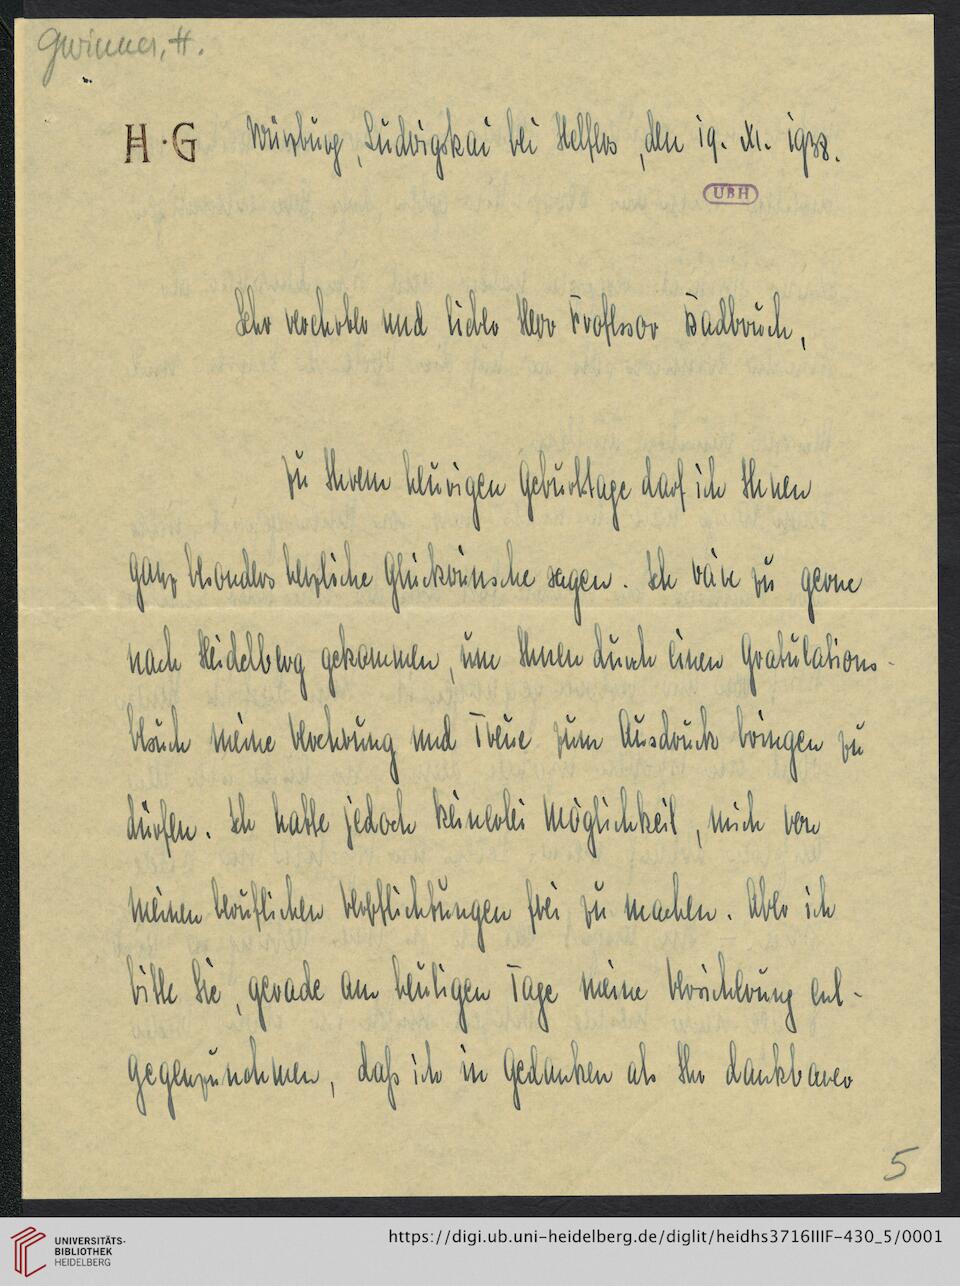 Gwinner, H.
H·G
Würzburg, Ludwigskai bei Helfles, den 19. XI. 1938.
UBH
Sehr verehrter und lieber Herr Professor Radbruch,
zu Ihrem heurigen Geburtstage darf ich Ihnen
ganz besonders herzliche Glückwünsche sagen. Ich wäre zu gerne
nach Heidelberg gekommen, um Ihnen durch einen Gratulations-
besuch meine Verehrung und Treue zum Ausdruck bringen zu
dürfen. Ich hatte jedoch keinerlei Möglichkeit, mich von
meinen beruflichen Verpflichtungen frei zu machen. Aber ich
bitte Sie, gerade am heutigen Tage meine Versicherung ent-
gegenzunehmen, daß ich in Gedanken als Ihr dankbarer
5
UNIVERSITÄTS-
BIBLIOTHEK
HEIDELBERG
https://digi.ub.uni-heidelberg.de/diglit/heidhs3716IIIF-430_5/0001